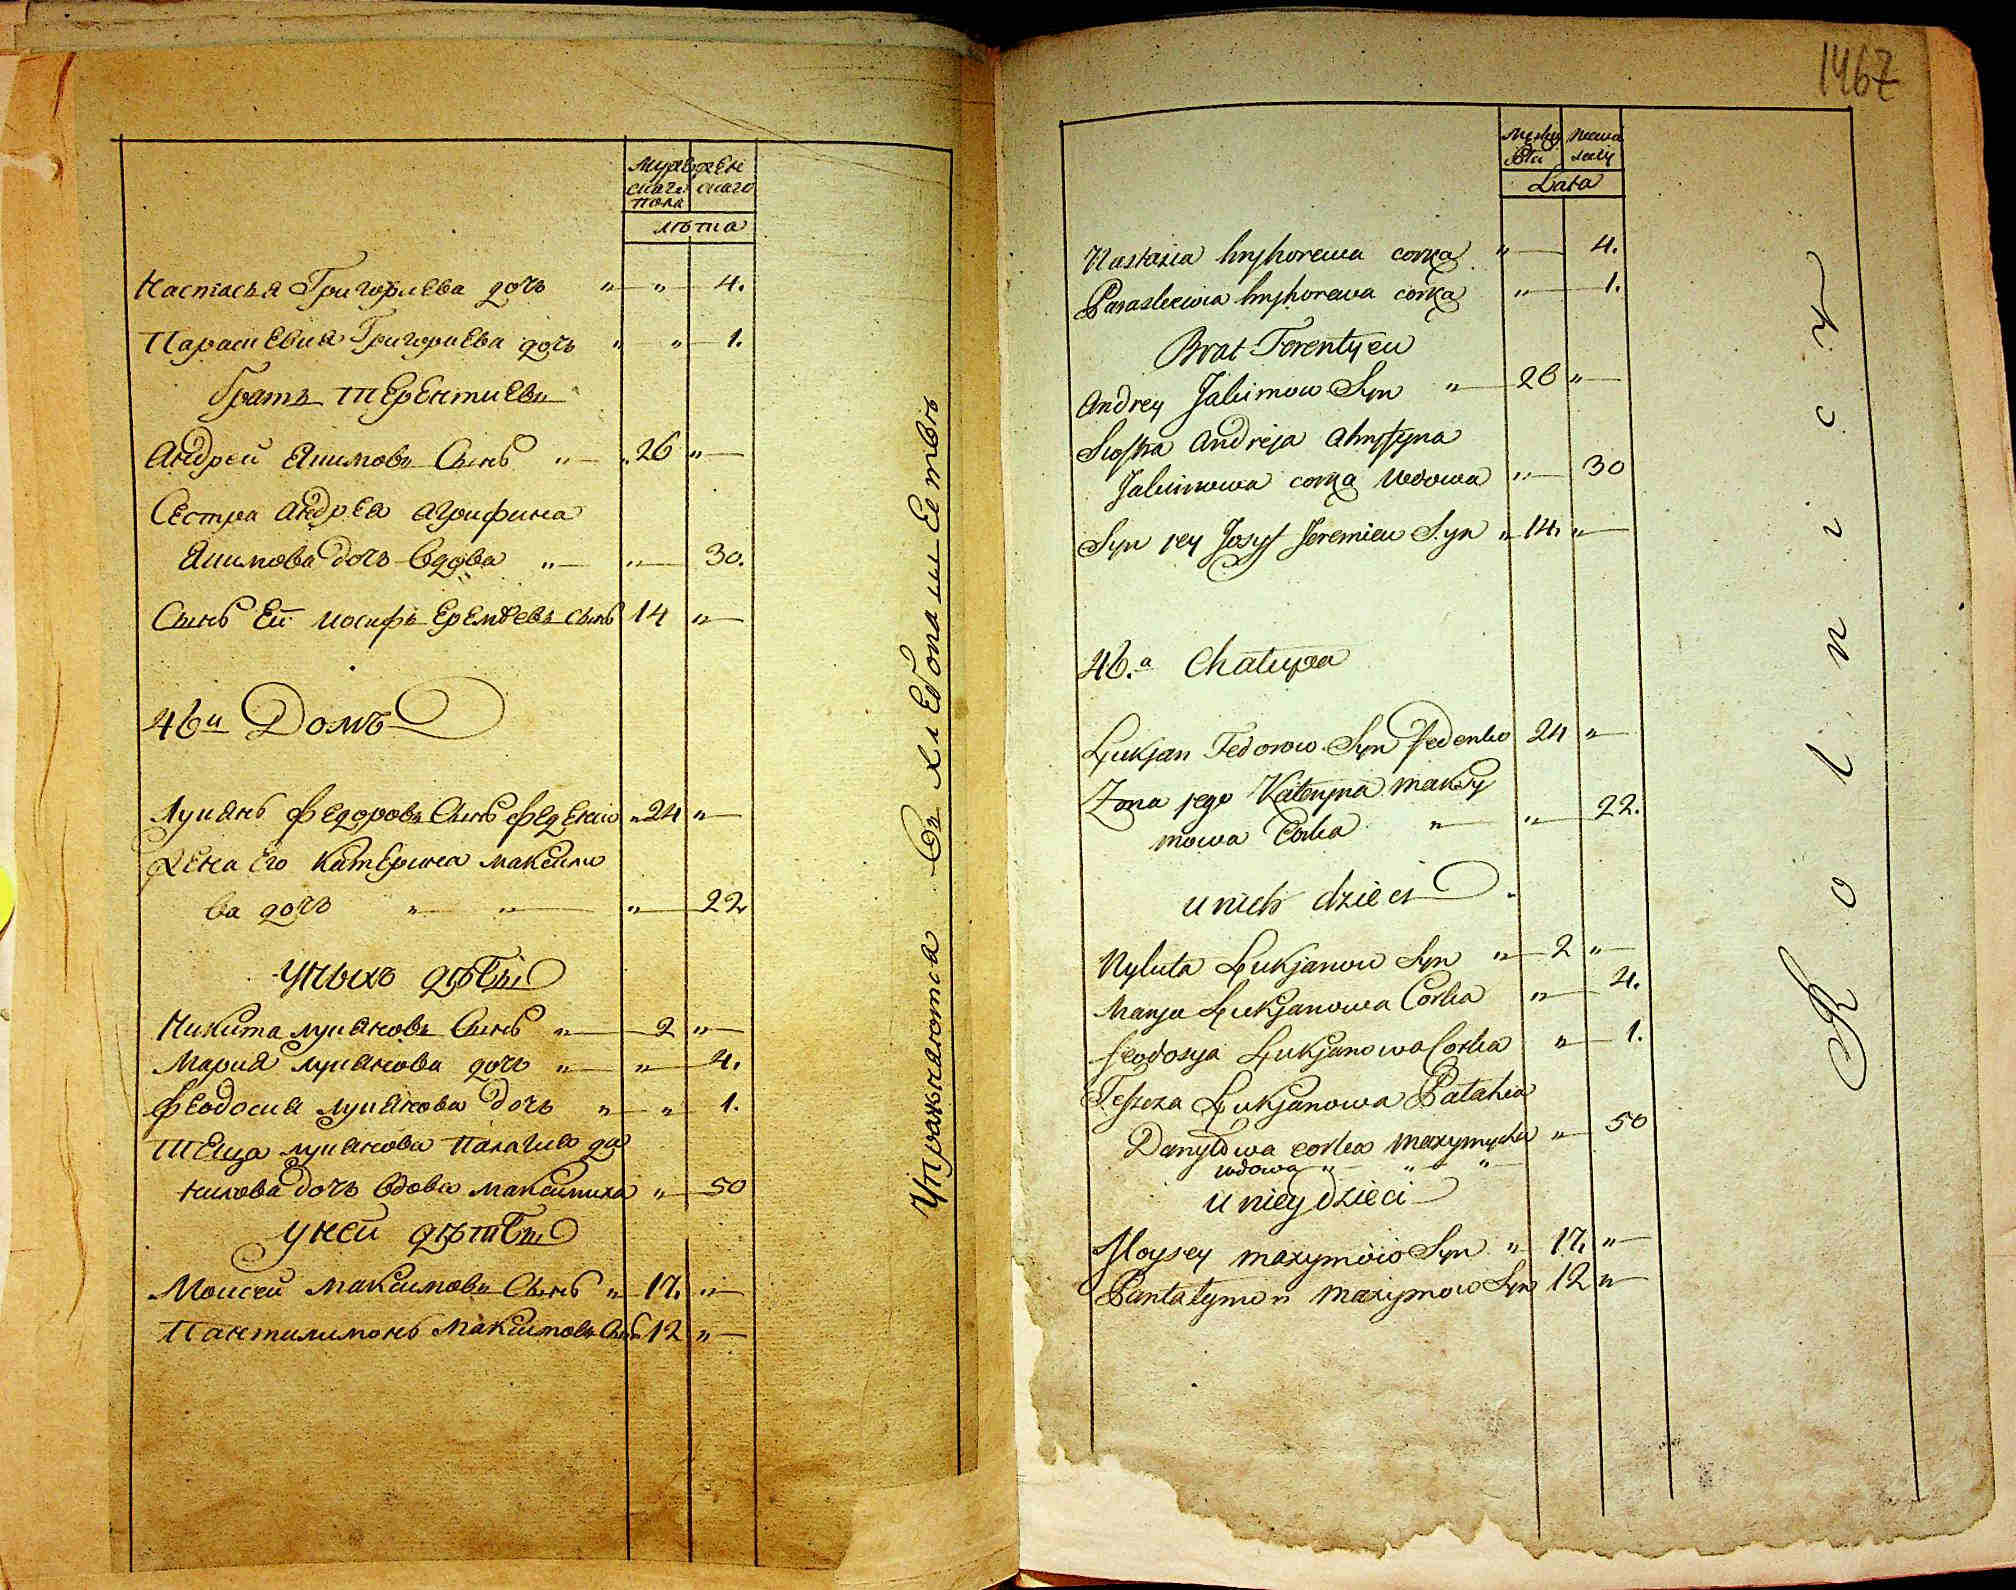 Мужеска
скаго
пола
жен
скаго
лѣта
Настасья Григорьева дочь " " 4.
Параскевия Григориева дочь " " 1.
Братъ Терентиевъ
Андрей Якимовъ Сынъ " 26 "
Сестра Андрея Агрифина
Якимова дочь вдова " " 30.
Сынъ Ей Иосифъ Еремѣевъ сынъ 14 "
46й Домъ
Лукянъ Федоровъ Сынъ Феденко " 24 "
Жена Его Катерина Максимо
ва дочь " " " 22
У ныхъ дѣты
Никита Лукяновъ Сынъ " 2 "
Мария Лукянова дочь " " 4.
Феодосия Лукянова дочь " " 1.
Теща Лукянова Палагия Да
нилова дочь вдова Максимиха " 50
У ней дѣты
Моисей Максимовъ Сынъ " 17. "
Пантилимонъ Максимовъ Сынъ 12 "
Упражняются Въ хлебопашествѣ
1467
Męskiy
płci
Lata
Nastazia Hryhorewa corka " 4.
Paraskiewia Hryhorewa corka " 1.
Brat Terentyew
Andrey Jakimow Syn " 26 "
Siostra Andreja Ahryfyna
Jakimowa corka Wdowa " 30
Syn jey Josyf Jeremiew Syn " 14. "
46.a Chałupa
Łukjan Fedorow Syn Fedenko 24 "
Zona jego Kateryna Maksy
mowa Corka " " 22.
u nich dzieci
Nykita Łukjanow Syn " 2 "
Marya Łukjanowa Corka " 4.
Feodosya Łukjanowa Corka " 1.
Teszcza Łukjanowa Pałahia
Danyłowa corka Maxymycha " 50
wdowa " " "
u niey dzieci
Moysey Maxymow Syn " 17. "
Pantałymon Maxymow Syn 12 "
Rolnicy